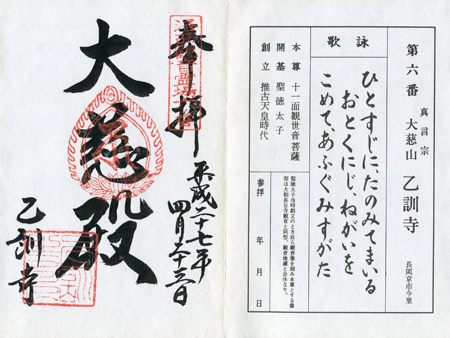 第六番
真言宗
大慈山 乙訓寺
長岡京市今里
詠歌
ひとすじにたのみてまいる
おとくにじ、ねがいを
こめてあふぐみすがた
本尊 十一面観世音菩薩
開基 聖徳太子
創立 推古天皇時代
参拝 年 月 日
奉拝
平成二十七年
四月二十三日
大慈殿
乙訓寺